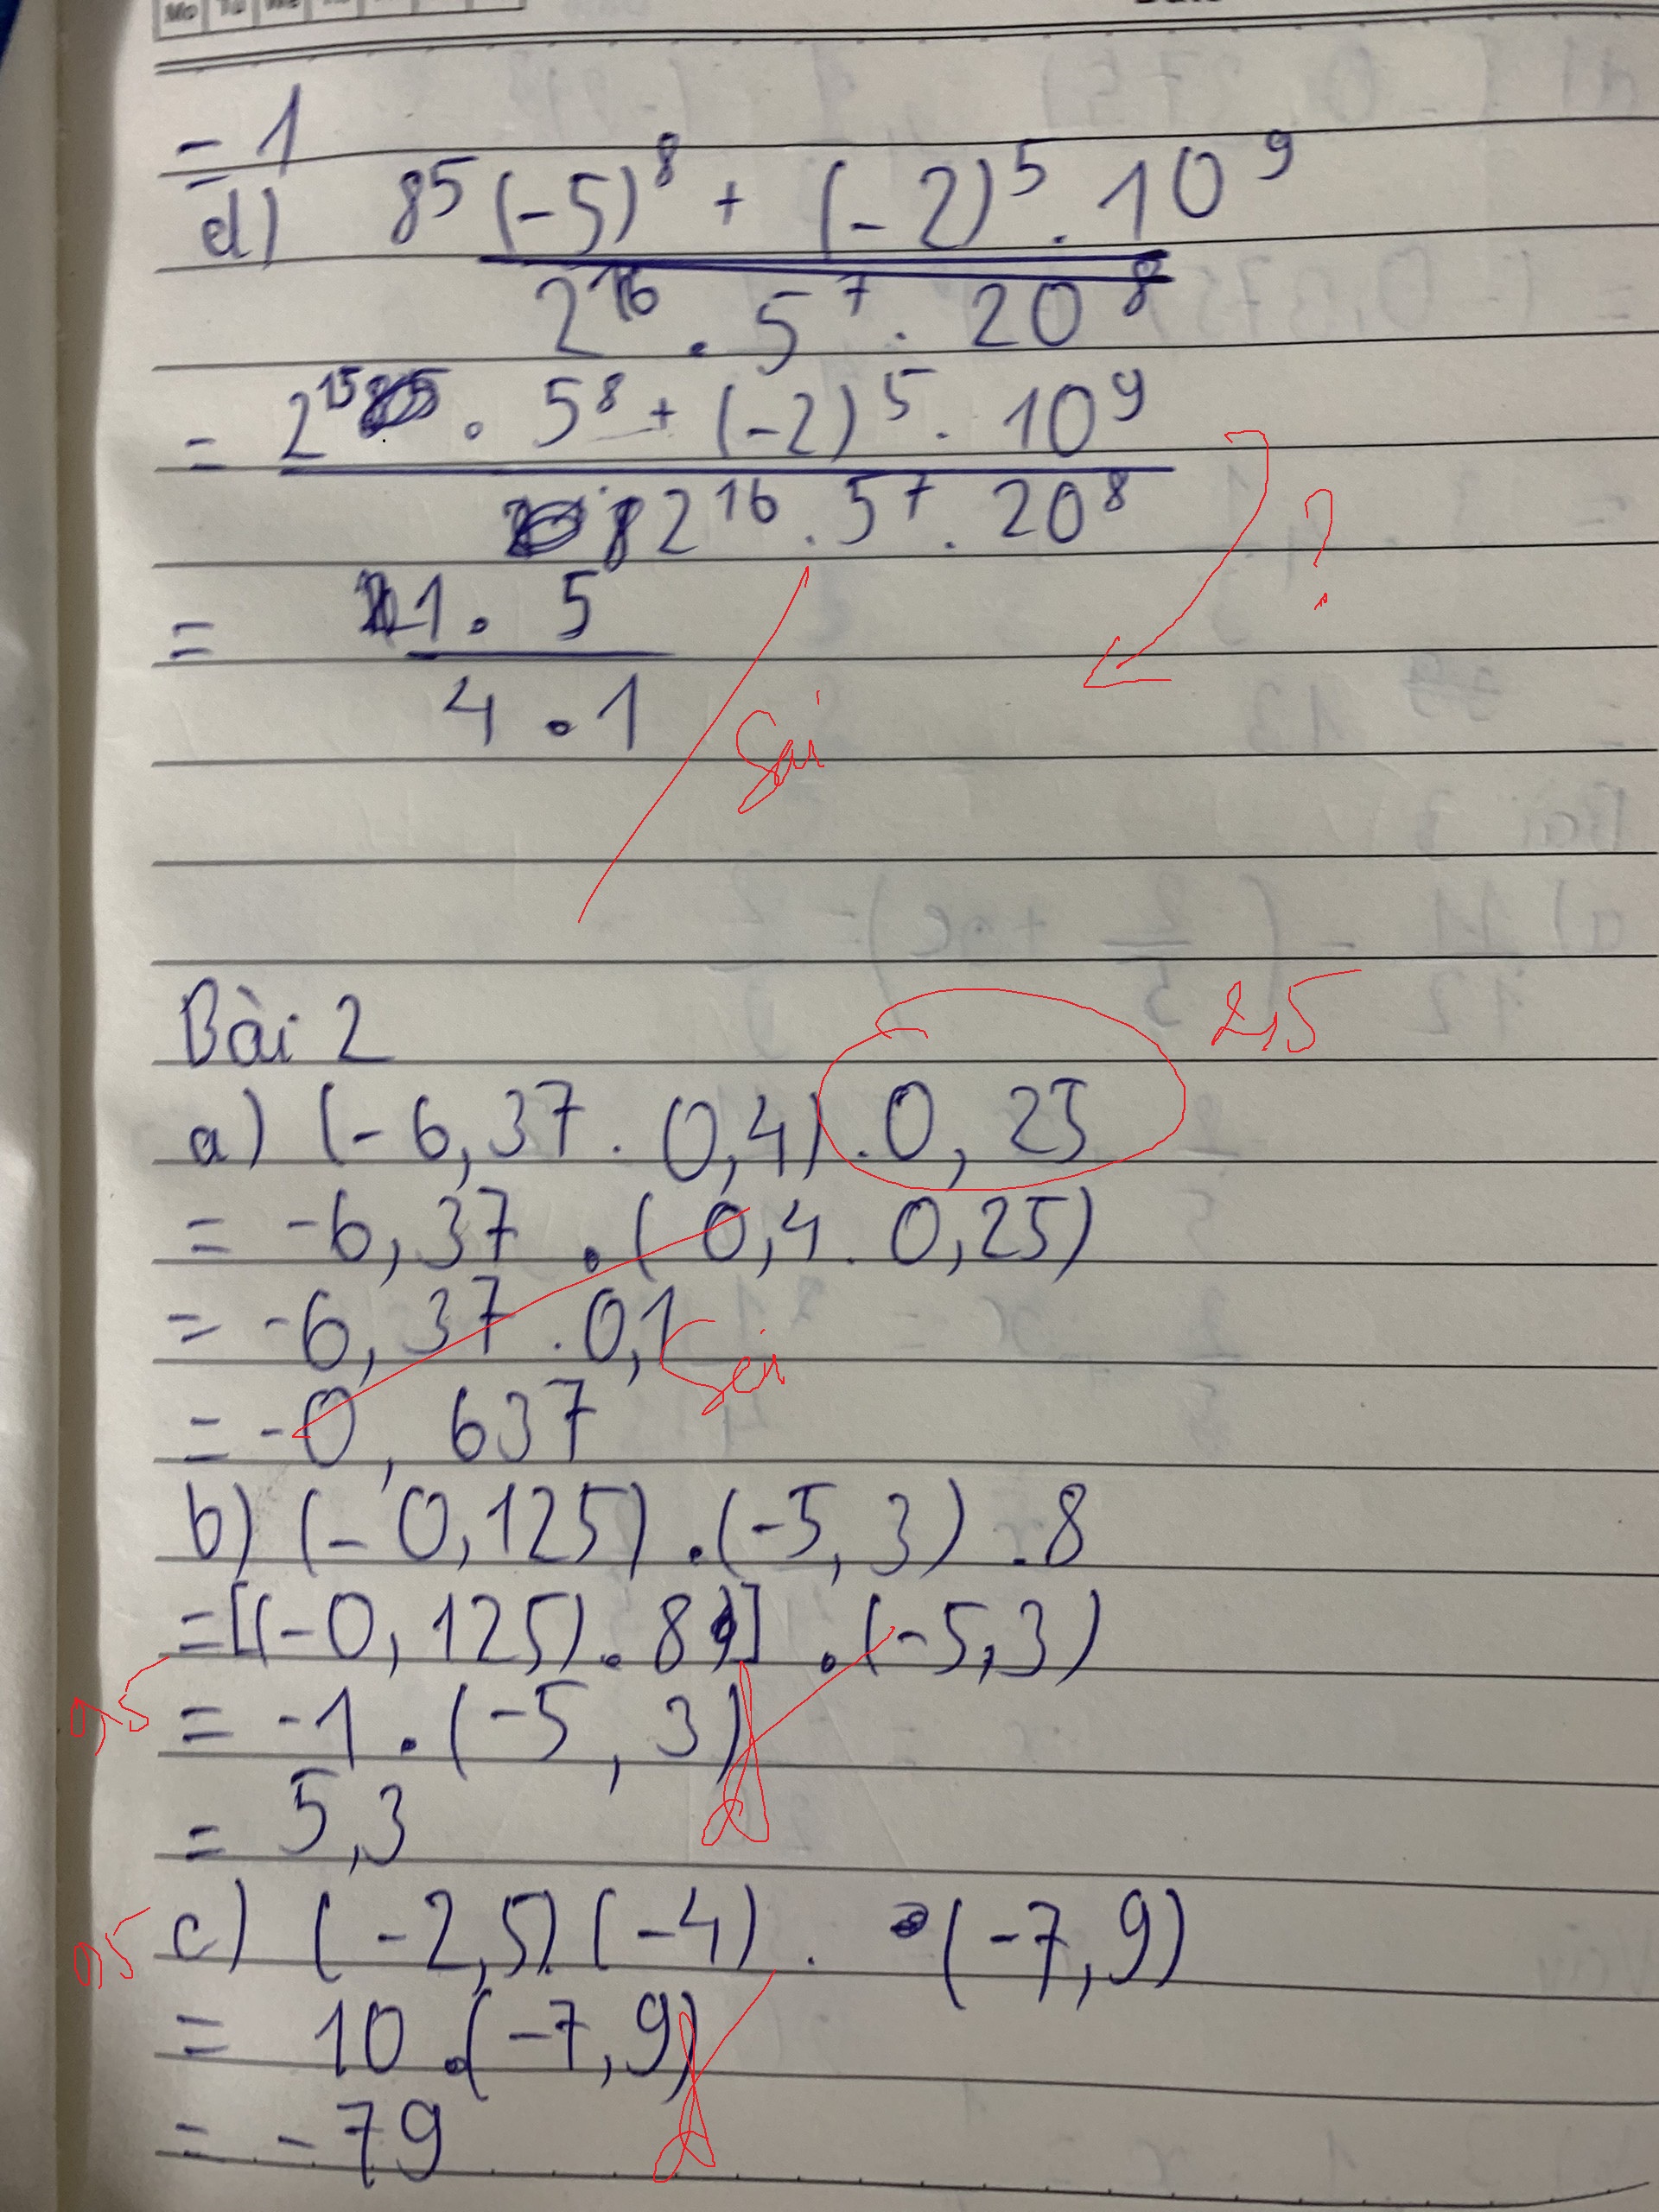 = 1
d) 8⁵(-5)⁸ + (-2)⁵ . 10⁹
2¹⁶ . 5⁷ . 20⁸
= 2¹⁵ . 5⁸ + (-2)⁵ . 10⁹
2¹⁶ . 5⁷ . 20⁸
?
= 1 . 5
4 . 1
Sai
Bài 2
2,5
a) (-6,37 . 0,4) . 0,25
= -6,37 . (0,4 . 0,25)
= -6,37 . 0,1
Sai
= -0,637
b) (-0,125) . (-5,3) . 8
= [(-0,125) . 8] . (-5,3)
0,5
= -1 . (-5,3)
đ
= 5,3
0,5
c) (-2,5) . (-4) . (-7,9)
= 10 . (-7,9)
đ
= -79